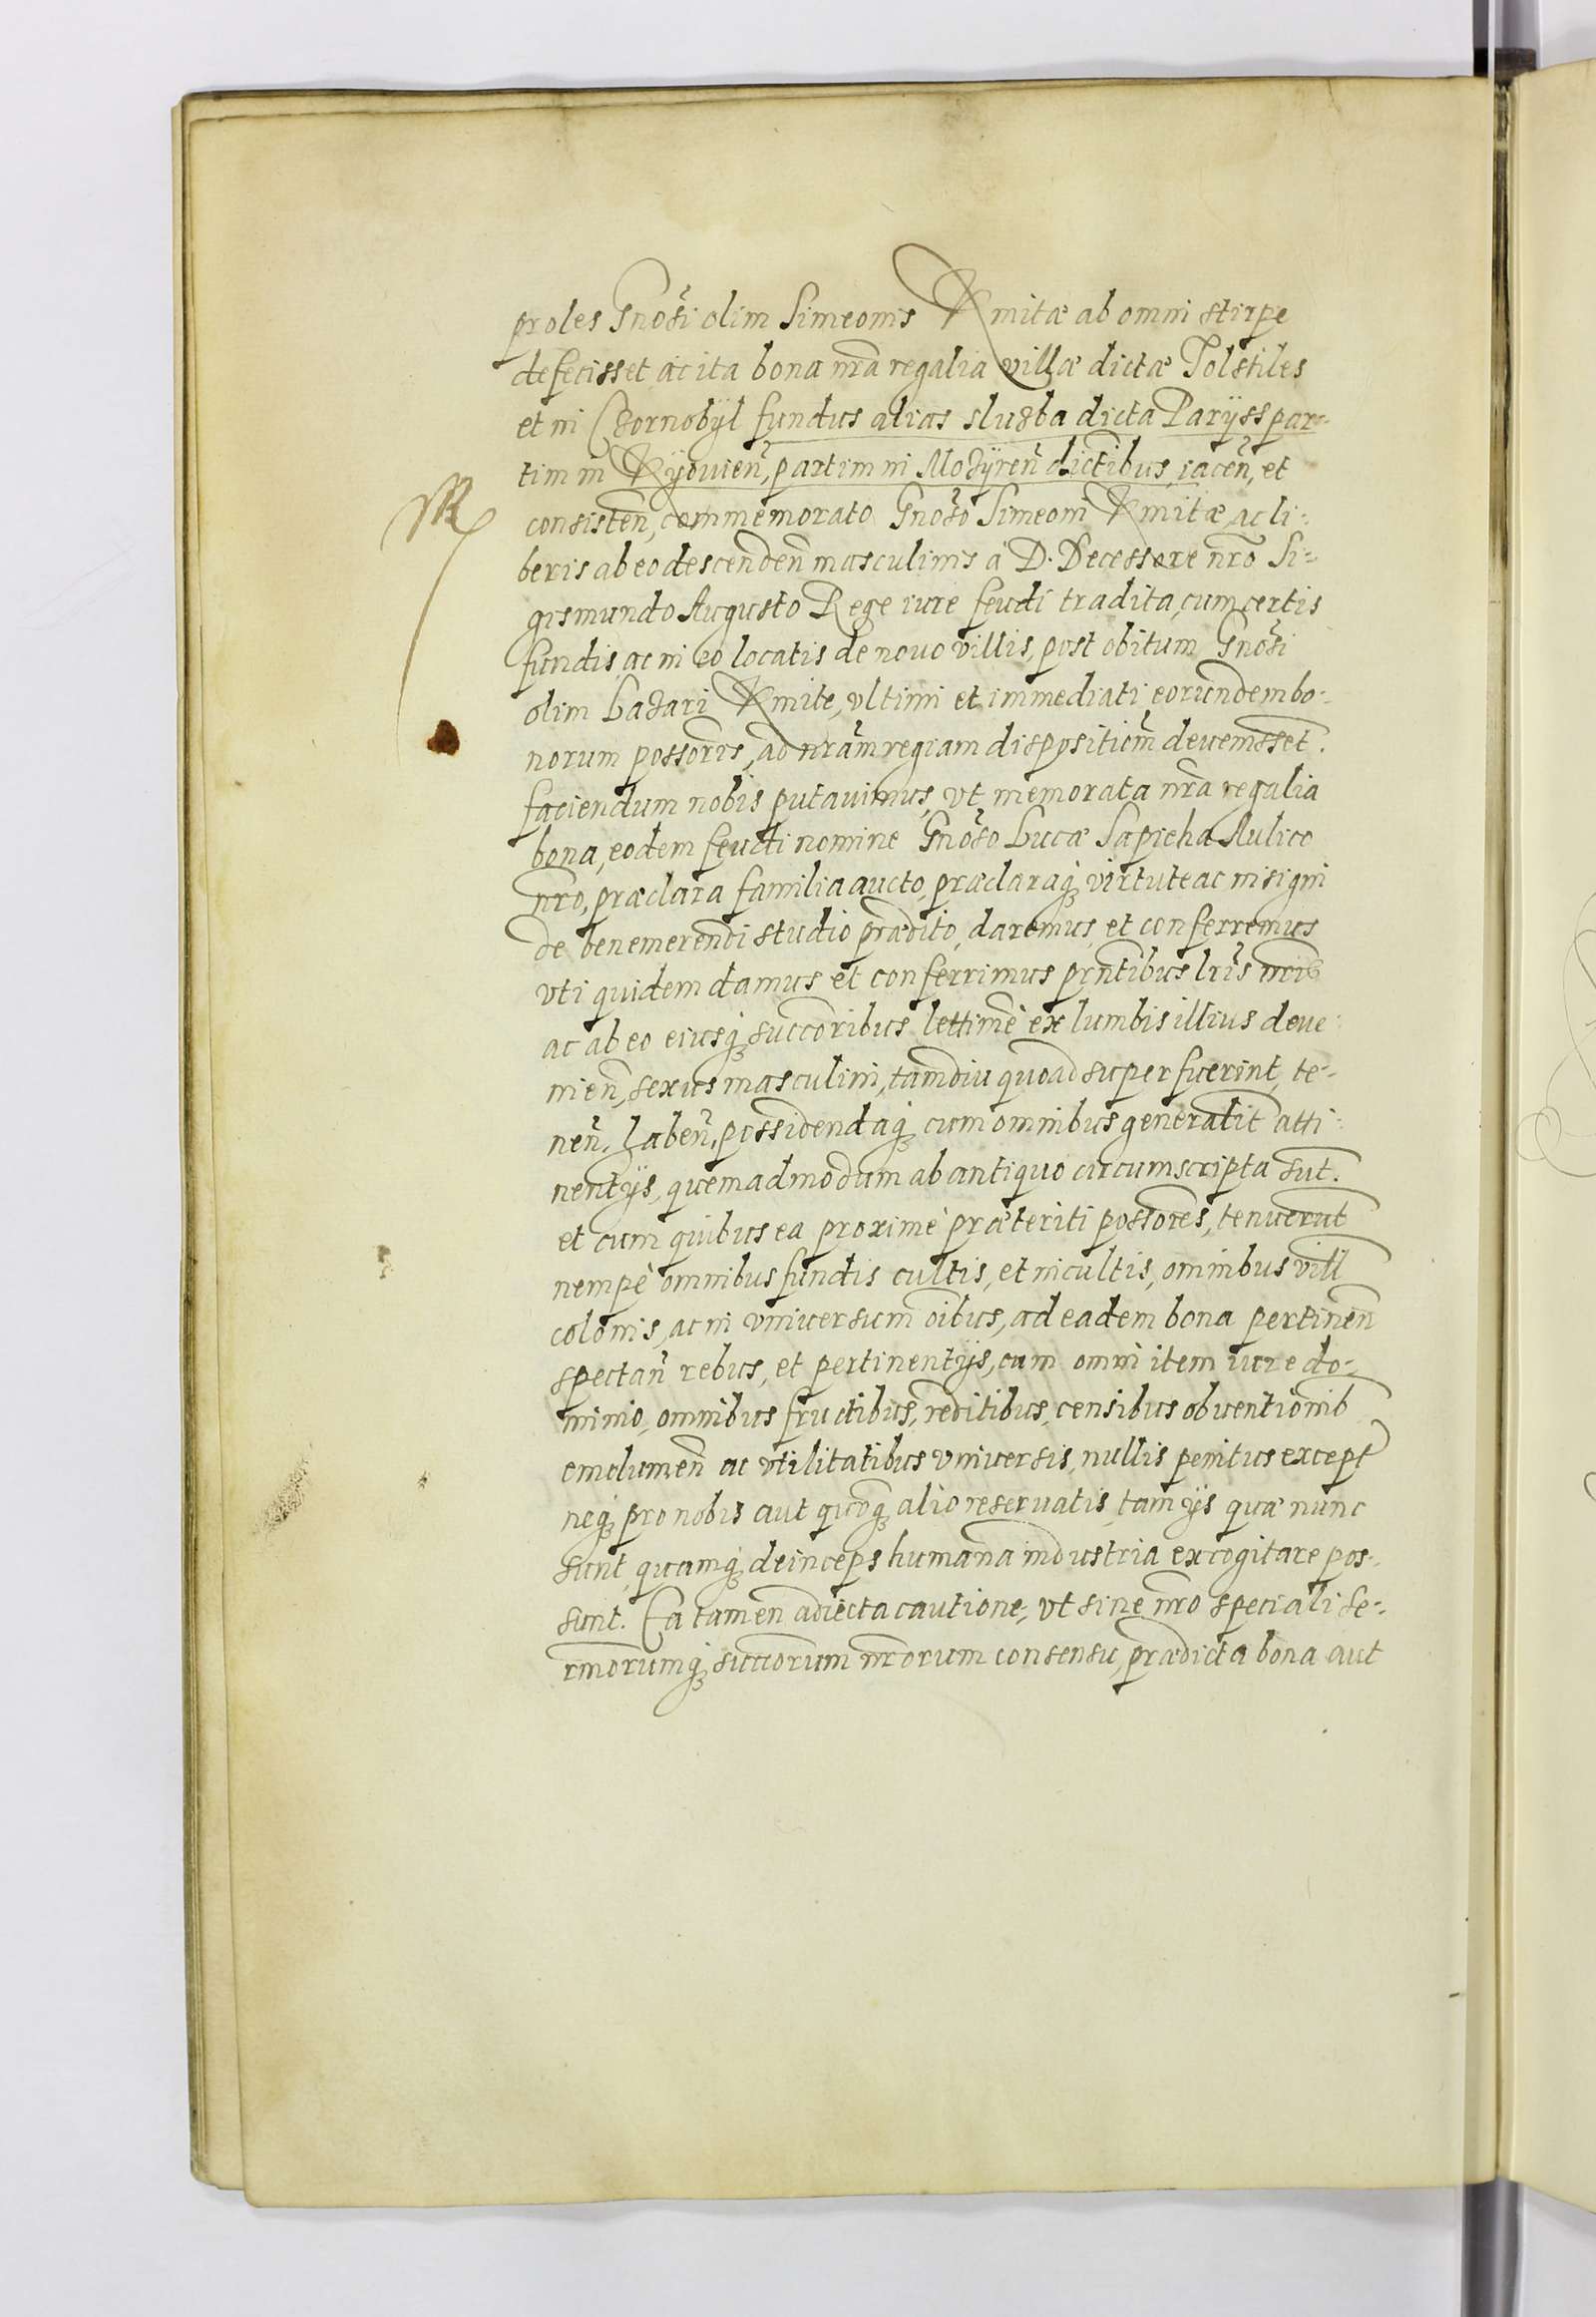 proles Gnosi olim Simeonis Kmitæ ab omni stirpe
defecisset ac ita bona nra regalia villæ dictæ Tolstiles
et in Czornobÿl fundus alias sluzba dicta Parÿss par-
tim in Kÿouien, partim in Mozÿren dictibus, iacen, et
consisten, commemorato Gnoso Simeoni Kmitæ, ac li-
beris ab eo descenden masculinis à D. Decessore nro Si-
gismundo Augusto Rege iure feudi tradita, cum certis
fundis, ac in eo locatis de nouo villis, post obitum Gnosi
olim Lazari Kmite, vltimi et immediati eorundem bo-
norum possoris, ad nram regiam dispositiom deuenisset.
faciendum nobis putauimus, vt memorata nra regalia
bona, eodem feudi nomine Gnoso Lucæ Sapieha Aulico
nro, præclara familia aucto, præclaraq virtute ac insigni
de benemerendi studio prædito, daremus, et conferremus
vti quidem damus et conferrimus pntibus lris nris
ac ab eo eiusq succoribus lettimè ex lumbis illius deue-
nien, sexus masculini, tamdiu quoad superfuerint, te-
nen, haben, possidendaq cum omnibus generalit atti-
nentÿs, quemadmodum ab antiquo circumscripta sut.
et cum quibus ea proximè præteriti possores, tenuerut
nempè omnibus fundis cultis, et incultis, omnibus vill
colonis, ac in vniuersum oibus, ad eadem bona pertinen
spectan rebus, et pertinentÿs, cum omni item iure do-
minio, omnibus fructibus, reditibus, censibus obuentionib
emolumen ac vtilitatibus vniuersis, nullis penitus except
neq pro nobis aut quoq alio reseruatis, tam ÿs quæ nunc
sunt, quamq deinceps humana industria excogitare pos-
sunt. Ea tamen adiecta cautione, vt sine nro speciali Se-
rmorumq succorum nrorum consensu, prædicta bona aut